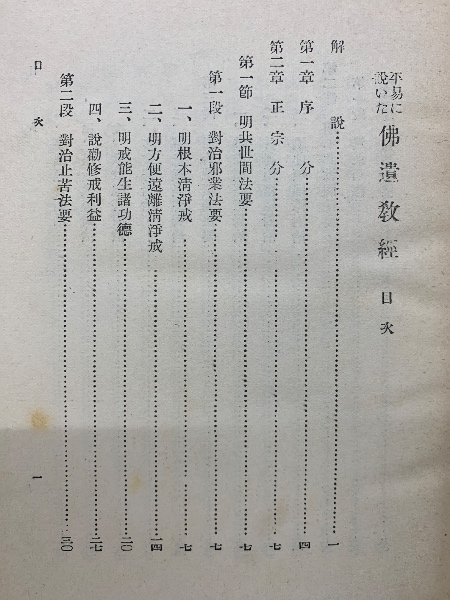 平易に説いた 佛遺教經 目次
解説……一
第一章 序分……四
第二章 正宗分……七
第一節 明共世間法要……七
第一段 對治邪業法要……七
一、明根本淸淨戒……七
二、明方便遠離淸淨戒……一四
三、明戒能生諸功德……二〇
四、說勸修戒利益……二七
第二段 對治止苦法要……三〇
目次 一